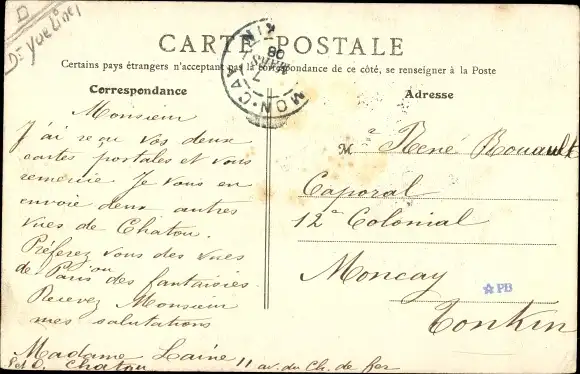 D
Dt Yvelines
CARTE POSTALE
Certains pays étrangers n'acceptant pas la correspondance de ce côté, se renseigner à la Poste
Correspondance
Monsieur
J'ai reçu vos deux
cartes postales et vous
remercie Je vous en
envoie deux autres
vues de Chatou.
Préferez vous des vues
de Paris ou des fantaisies
Recevez Monsieur
mes salutations
Madame Laine 11 av. du Ch. de fer
Chatou
MON-CAY
7
MARS
08
KIN
Adresse
M a René Rouault
Caporal
12e Colonial
Moncay
Tonkin
PB